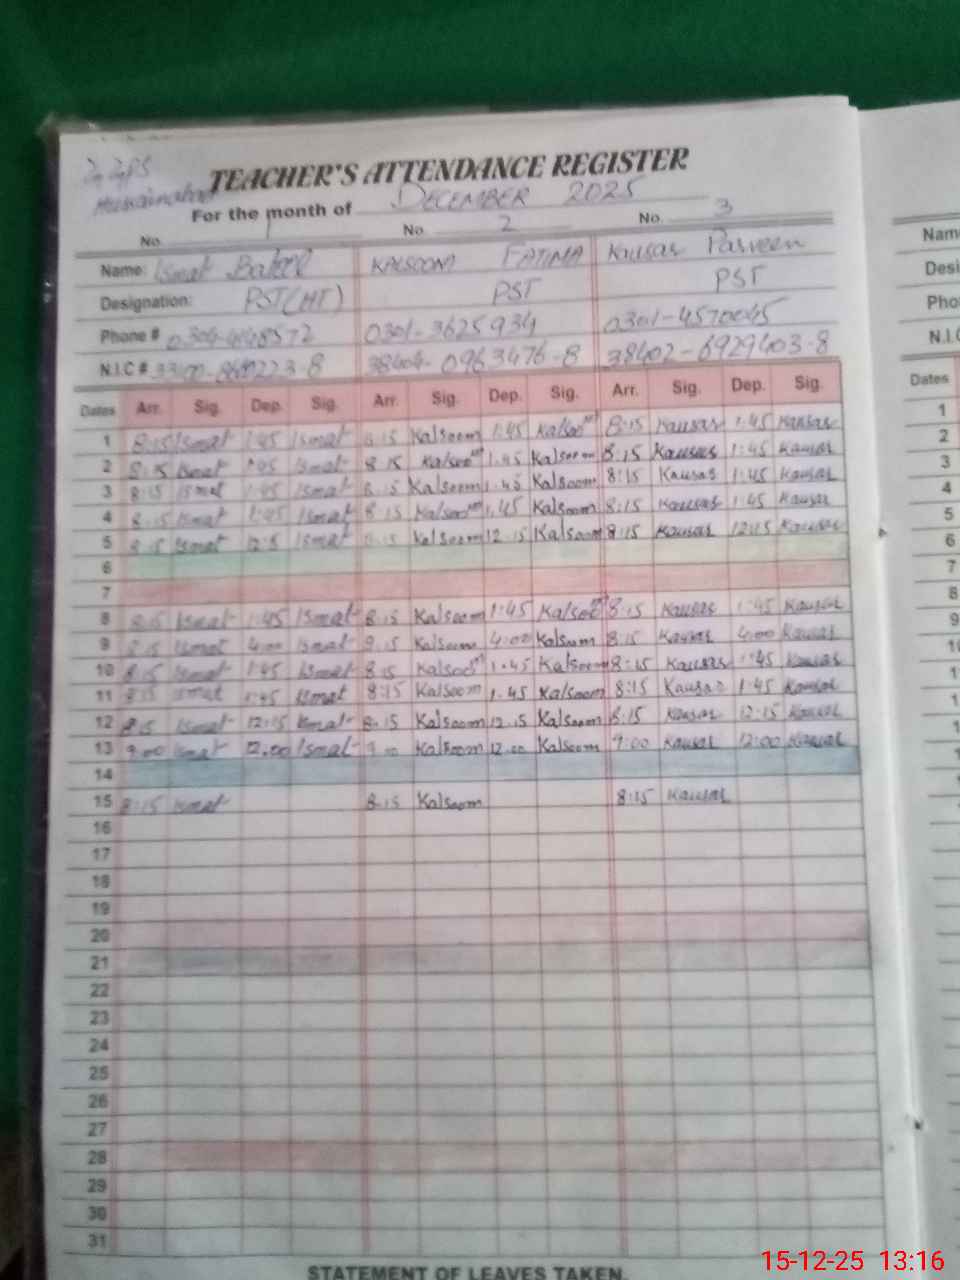 TEACHER'S ATTENDANCE REGISTER
For the month of DECEMBER 2025
No. 1 No 2 No. 3
Name: Ismat KALSOOM FATIMA Kausar Parveen
Designation: PST(HT) PST PST
Phone # 0301-3625934 0301-4570045
N.I.C # 38404-0963476-8 38402-6929403-8
Dates Arr. Sig. Dep. Sig. Arr. Sig. Dep. Sig. Arr. Sig. Dep. Sig.
1 8:15 Ismat 1:45 Ismat 8:15 Kalsoom 1:45 Kalsoom 8:15 Kausar 1:45 Kausar
2 8:15 Ismat 1:45 Ismat 8:15 Kalsoom 1:45 Kalsoom 8:15 Kausar 1:45 Kausar
3 8:15 Ismat 1:45 Ismat 8:15 Kalsoom 1:45 Kalsoom 8:15 Kausar 1:45 Kausar
4 8:15 Ismat 1:45 Ismat 8:15 Kalsoom 1:45 Kalsoom 8:15 Kausar 1:45 Kausar
5 8:15 Ismat 12:15 Ismat 8:15 Kalsoom 12:15 Kalsoom 8:15 Kausar 12:15 Kausar
6
7
8 8:15 Ismat 1:45 Ismat 8:15 Kalsoom 1:45 Kalsoom 8:15 Kausar 1:45 Kausar
9 8:15 Ismat 4:00 Ismat 8:15 Kalsoom 4:00 Kalsoom 8:15 Kausar 4:00 Kausar
10 8:15 Ismat 1:45 Ismat 8:15 Kalsoom 1:45 Kalsoom 8:15 Kausar 1:45 Kausar
11 8:15 Ismat 1:45 Ismat 8:15 Kalsoom 1:45 Kalsoom 8:15 Kausar 1:45 Kausar
12 8:15 Ismat 12:15 Ismat 8:15 Kalsoom 12:15 Kalsoom 8:15 Kausar 12:15 Kausar
13 9:00 Ismat 12:00 Ismat 9:00 Kalsoom 12:00 Kalsoom 9:00 Kausar 12:00 Kausar
14
15 8:15 Ismat 8:15 Kalsoom 8:15 Kausar
16
17
18
19
20
21
22
23
24
25
26
27
28
29
30
31
STATEMENT OF LEAVES TAKEN.
Dates
1
2
3
4
5
6
7
8
9
15-12-25 13:16